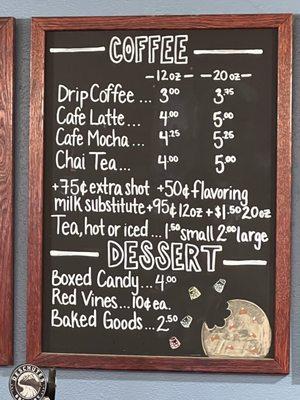 COFFEE
12oz 20oz
Drip Coffee ... 3.00 3.75
Cafe Latte ... 4.00 5.00
Cafe Mocha ... 4.25 5.25
Chai Tea ... 4.00 5.00
+75¢ extra shot +50¢ flavoring
milk substitute +95¢ 12oz + $1.50 20oz
Tea, hot or iced ... 1.50 small 2.00 large
DESSERT
Boxed Candy ... 4.00
Red Vines ... 10¢ ea.
Baked Goods ... 2.50
DESCHUTES